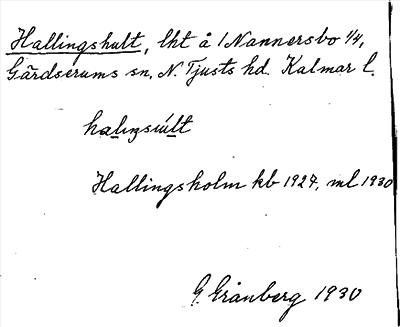 Hallingshult, lht å 1 Nannersbo 1/4,
Gärdserums sn, N. Tjusts hd. Kalmar l.
Hallingsholm kb 1927, ml 1930
G. Granberg 1930